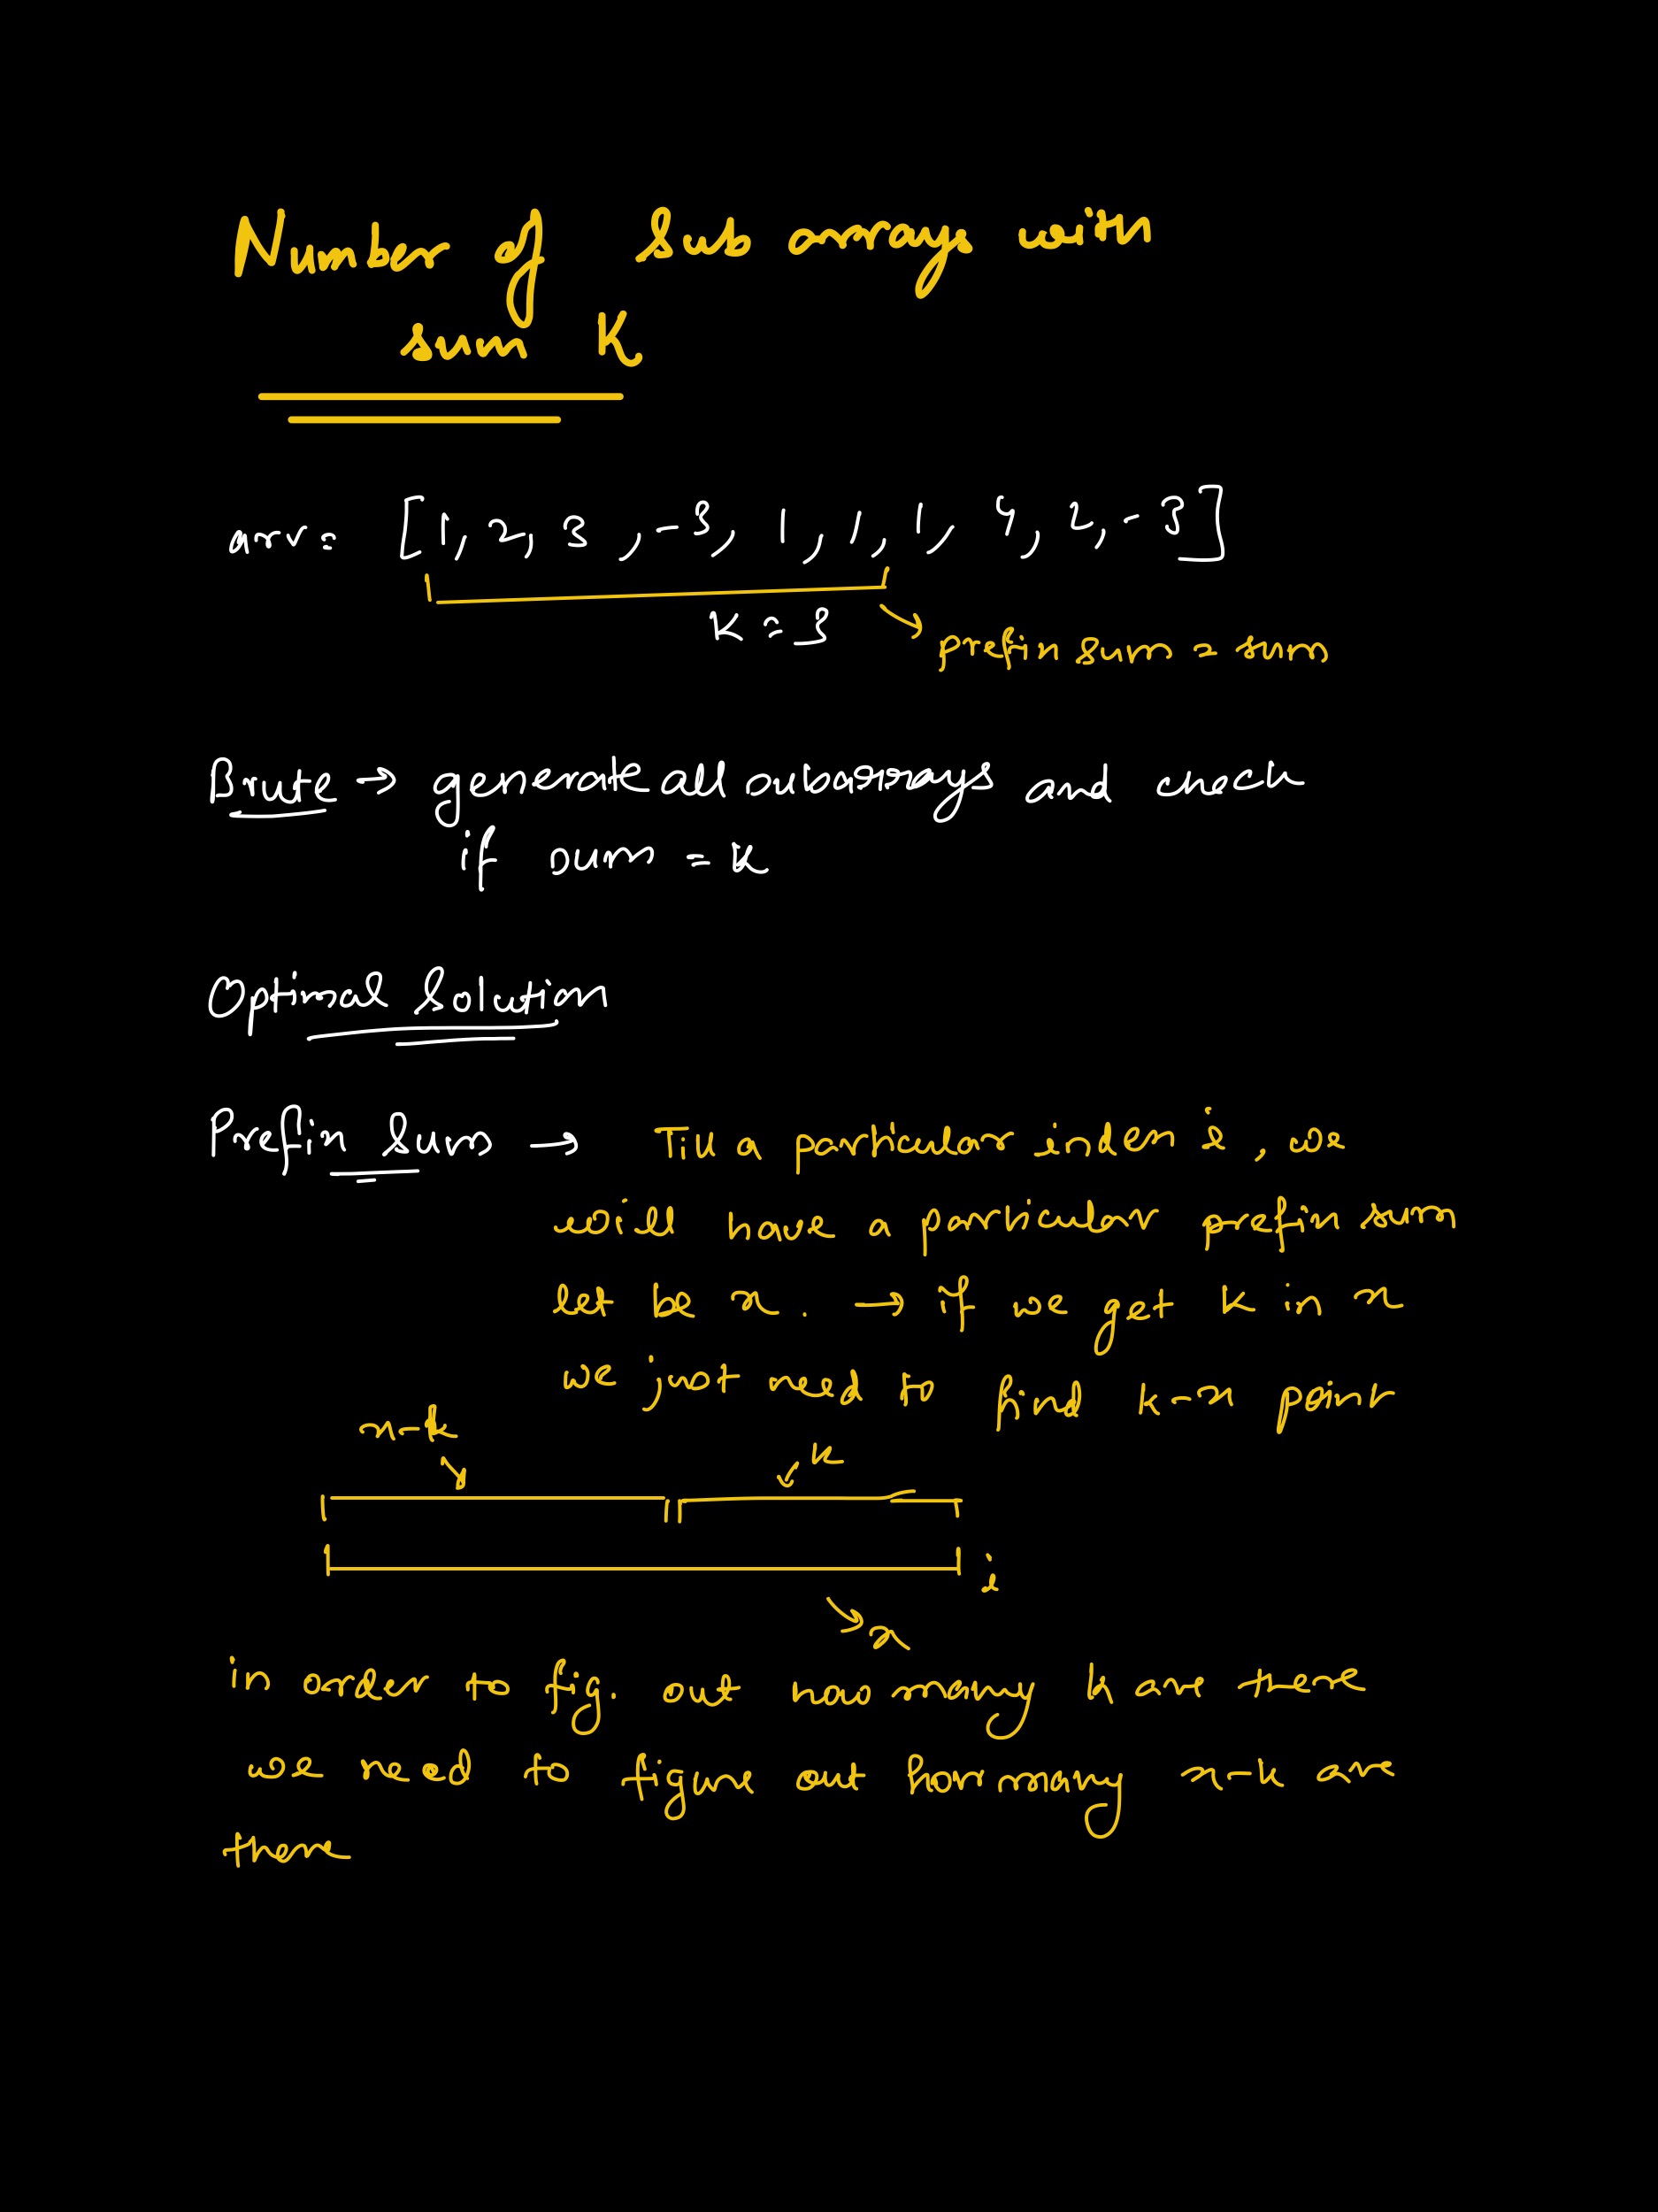 Number of Sub arrays with
sum K
arr = [1, 2, 3, -3, 1, 1, 1, 4, 2, -3]
K = 3
prefix sum = sum
Brute → generate all subarrays and check
if sum = K
Optimal Solution
Prefix Sum → Till a particular index i, we
will have a particular prefix sum
let be x. → if we get K in x
we just need to find k-x point
x-k
k
i
x
in order to fig. out how many k are there
we need to figure out how many x-k are
there